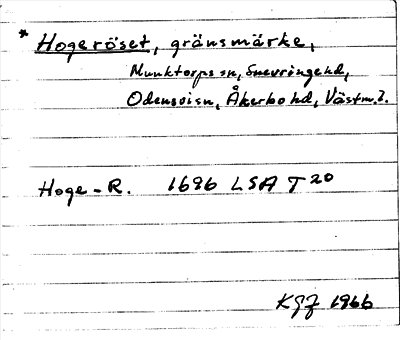 * Hogeröset, gränsmärke,
Munktorps sn, Snevringe hd,
Odensvi sn, Åkerbo hd, Västm. l.
Hoge-R. 1696 LSA T 20
KGZ 1966